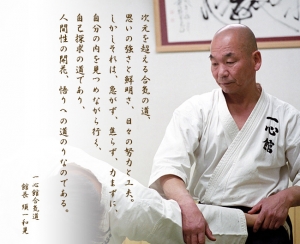 次元を超える合気の道、
思いの強さと鮮明さ、日々の努力と工夫。
しかしそれは、急がず、焦らず、力まずに、
自分の内を見つめながら行く、
自己探求の道であり、
人間性の開花、悟りへの道のりなのである。
一心館合気道
館長 横一和晃
一心館